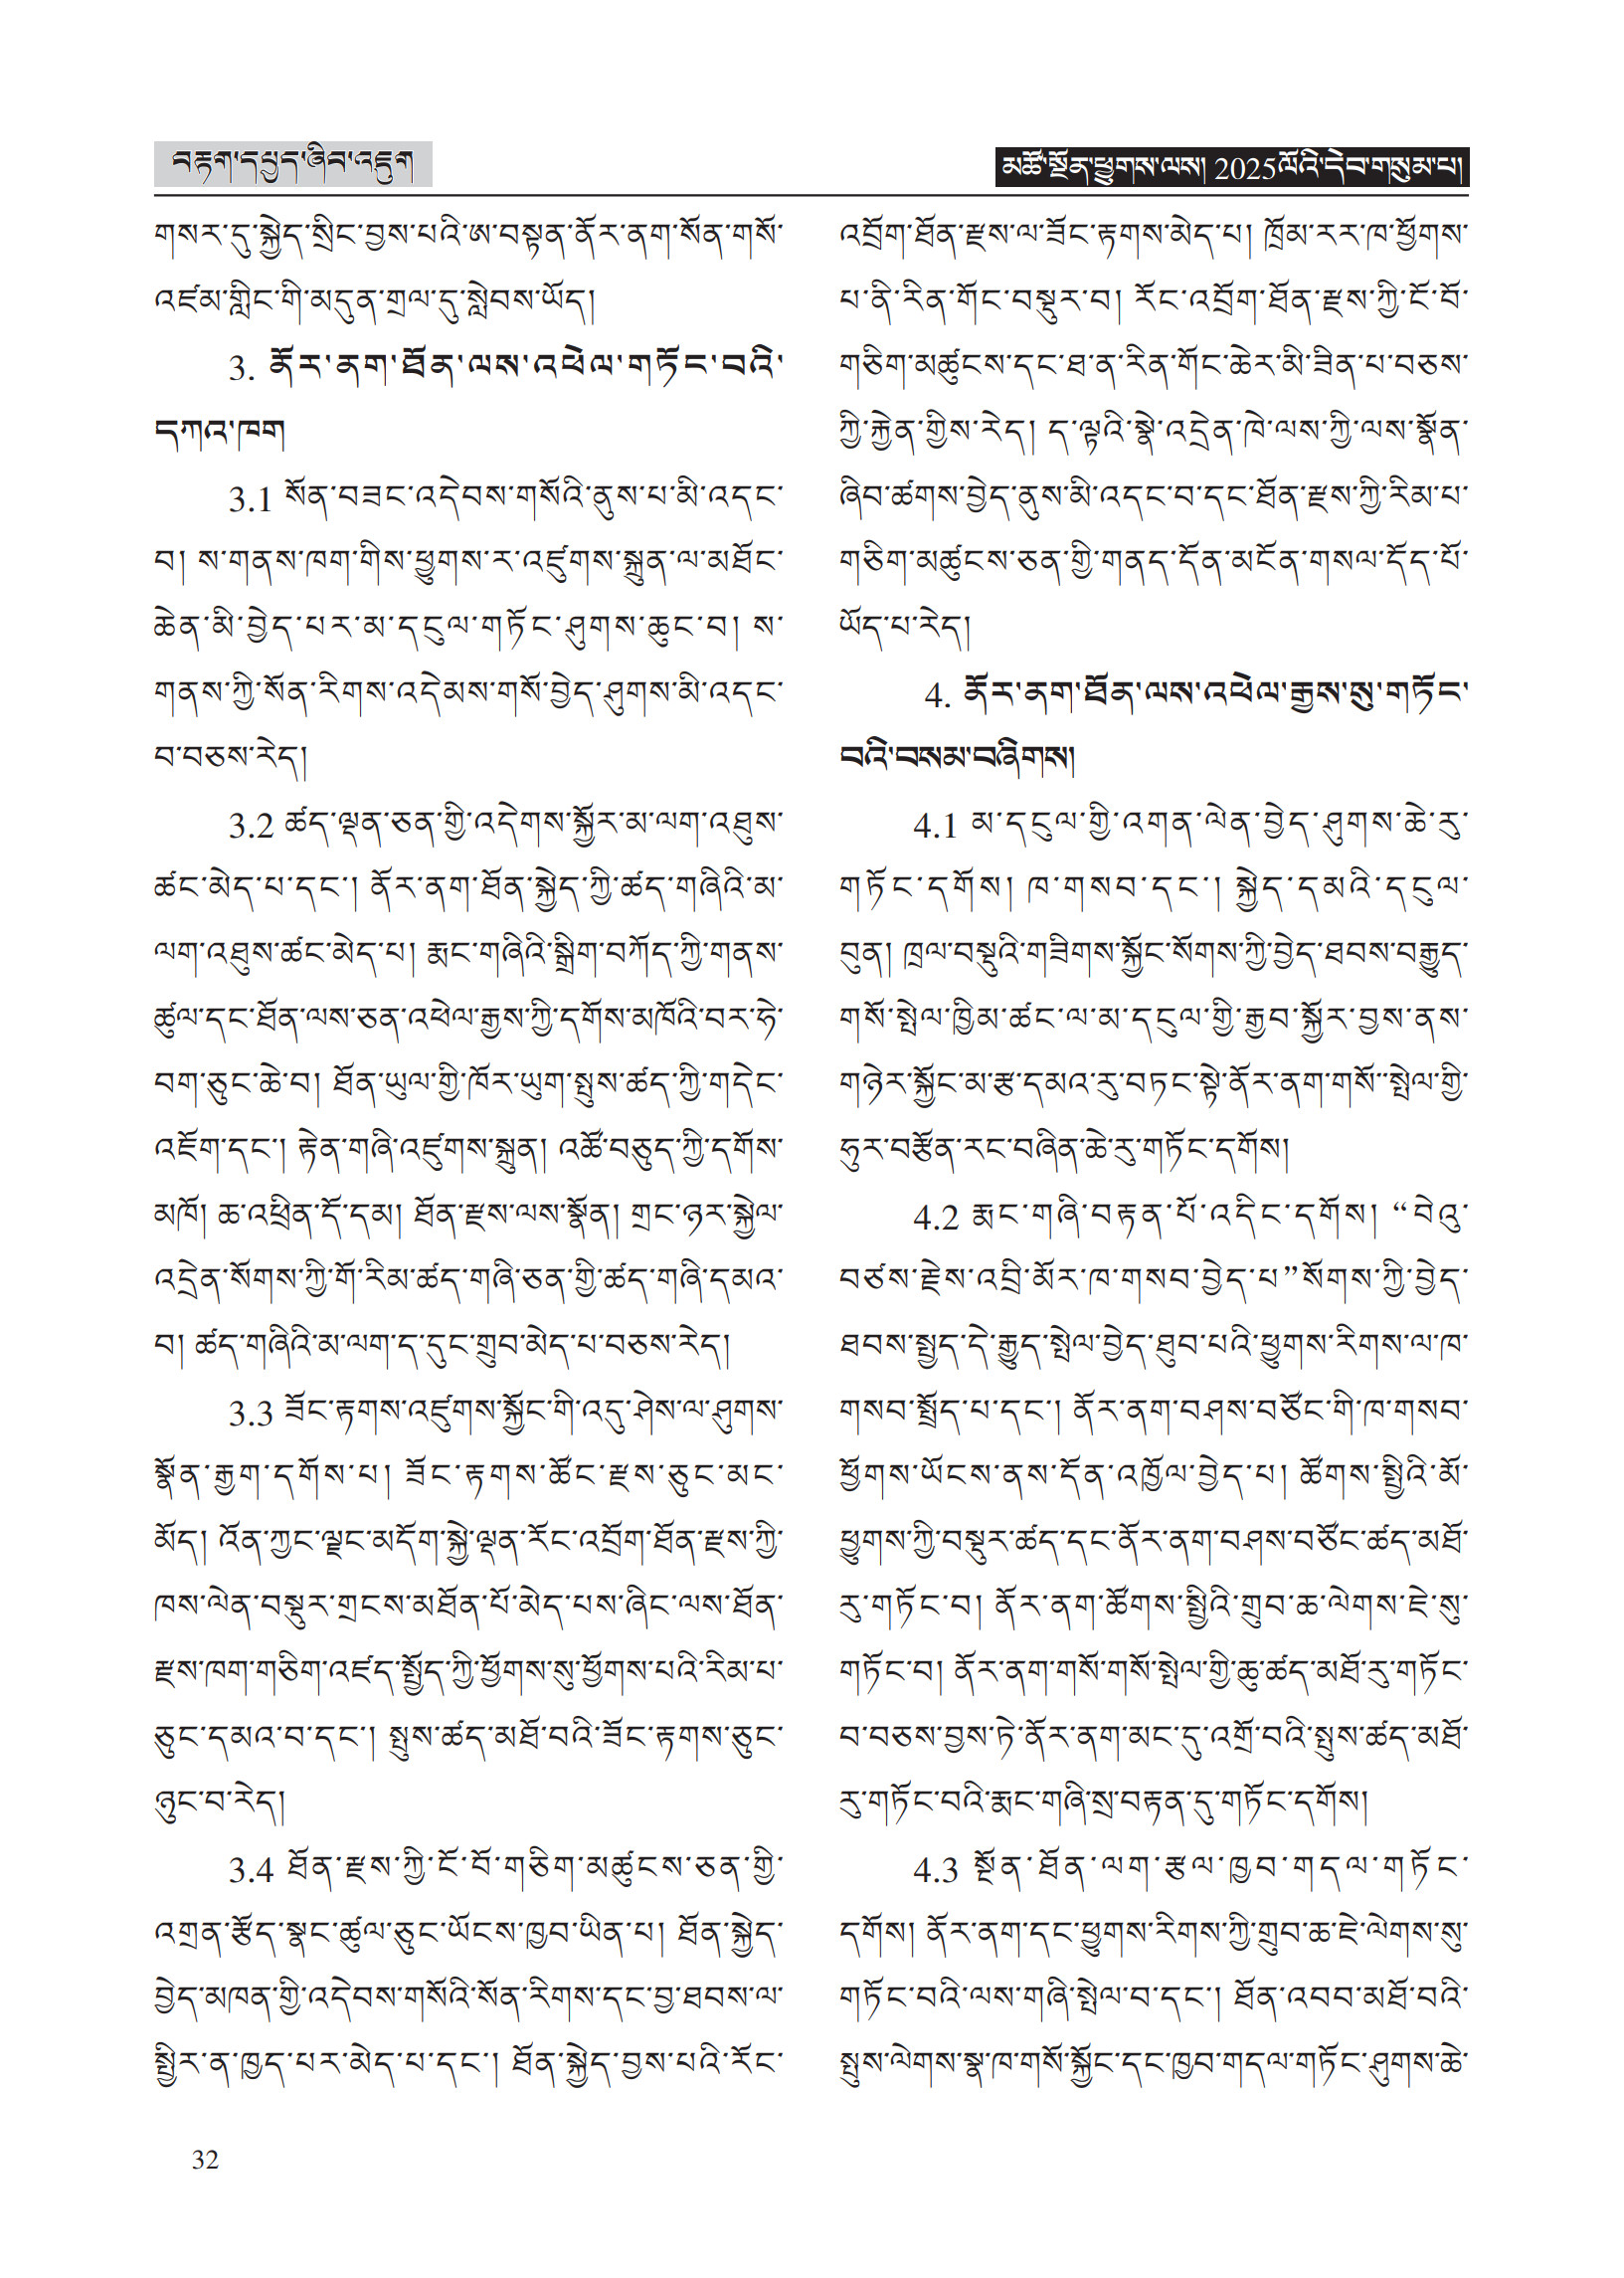 བརྟག་དཔྱད་ཞིབ་འཇུག
མཚོ་སྔོན་ཕྱུགས་ལས། 2025ལོའི་དེབ་གསུམ་པ།
གསར་དུ་སྐྱེད་སྲིང་བྱས་པའི་ཨ་བསྟན་ནོར་ནག་སོན་གསོ་
འཛམ་གླིང་གི་མདུན་གྲལ་དུ་སླེབས་ཡོད།
3. ནོར་ནག་ཐོན་ལས་འཕེལ་གཏོང་བའི་
དཀའ་ཁག
3.1 སོན་བཟང་འདེབས་གསོའི་ནུས་པ་མི་འདང་
བ། ས་གནས་ཁག་གིས་ཕྱུགས་ར་འཛུགས་སྐྲུན་ལ་མཐོང་
ཆེན་མི་བྱེད་པར་མ་དངུལ་གཏོང་ཤུགས་ཆུང་བ། ས་
གནས་ཀྱི་སོན་རིགས་འདེམས་གསོ་བྱེད་ཤུགས་མི་འདང་
བ་བཅས་རེད།
3.2 ཚད་ལྡན་ཅན་གྱི་འདེགས་སྐྱོར་མ་ལག་འཐུས་
ཚང་མེད་པ་དང་། ནོར་ནག་ཐོན་སྐྱེད་ཀྱི་ཚད་གཞིའི་མ་
ལག་འཐུས་ཚང་མེད་པ། རྨང་གཞིའི་སྒྲིག་བཀོད་ཀྱི་གནས་
ཚུལ་དང་ཐོན་ལས་ཅན་འཕེལ་རྒྱས་ཀྱི་དགོས་མཁོའི་བར་ཧེ་
བག་ཅུང་ཆེ་བ། ཐོན་ཡུལ་གྱི་ཁོར་ཡུག་སྤུས་ཚད་ཀྱི་གདེང་
འཇོག་དང་། རྟེན་གཞི་འཛུགས་སྐྲུན། འཚོ་བཅུད་ཀྱི་དགོས་
མཁོ། ཆ་འཕྲིན་དོ་དམ། ཐོན་རྫས་ལས་སྣོན། གྲང་ཉར་སྐྱེལ་
འདྲེན་སོགས་ཀྱི་གོ་རིམ་ཚད་གཞི་ཅན་གྱི་ཚད་གཞི་དམའ་
བ། ཚད་གཞིའི་མ་ལག་ད་དུང་གྲུབ་མེད་པ་བཅས་རེད།
3.3 ཟོང་རྟགས་འཛུགས་སྐྱོང་གི་འདུ་ཤེས་ལ་ཤུགས་
སྣོན་རྒྱག་དགོས་པ། ཟོང་རྟགས་ཚོང་རྫས་ཅུང་མང་
མོད། འོན་ཀྱང་ལྗང་མདོག་སྐྱེ་ལྡན་རོང་འབྲོག་ཐོན་རྫས་ཀྱི་
ཁས་ལེན་བསྡུར་གྲངས་མཐོན་པོ་མེད་པས་ཞིང་ལས་ཐོན་
རྫས་ཁག་གཅིག་འཛད་སྤྱོད་ཀྱི་ཕྱོགས་སུ་ཕྱོགས་པའི་རིམ་པ་
ཅུང་དམའ་བ་དང་། སྤུས་ཚད་མཐོ་བའི་ཟོང་རྟགས་ཅུང་
ཉུང་བ་རེད།
3.4 ཐོན་རྫས་ཀྱི་ངོ་བོ་གཅིག་མཚུངས་ཅན་གྱི་
འགྲན་རྩོད་སྣང་ཚུལ་ཅུང་ཡོངས་ཁྱབ་ཡིན་པ། ཐོན་སྐྱེད་
བྱེད་མཁན་གྱི་འདེབས་གསོའི་སོན་རིགས་དང་བྱ་ཐབས་ལ་
སྤྱིར་ན་ཁྱད་པར་མེད་པ་དང་། ཐོན་སྐྱེད་བྱས་པའི་རོང་
འབྲོག་ཐོན་རྫས་ལ་ཟོང་རྟགས་མེད་པ། ཁྲོམ་རར་ཁ་ཕྱོགས་
པ་ནི་རིན་གོང་བསྡུར་བ། རོང་འབྲོག་ཐོན་རྫས་ཀྱི་ངོ་བོ་
གཅིག་མཚུངས་དང་ཐ་ན་རིན་གོང་ཆེར་མི་ཟིན་པ་བཅས་
ཀྱི་རྐྱེན་གྱིས་རེད། ད་ལྟའི་སྣེ་འདྲེན་ཁེ་ལས་ཀྱི་ལས་སྣོན་
ཞིབ་ཚགས་བྱེད་ནུས་མི་འདང་བ་དང་ཐོན་རྫས་ཀྱི་རིམ་པ་
གཅིག་མཚུངས་ཅན་གྱི་གནད་དོན་མངོན་གསལ་དོད་པོ་
ཡོད་པ་རེད།
4. ནོར་ནག་ཐོན་ལས་འཕེལ་རྒྱས་སུ་གཏོང་
བའི་བསམ་བཞིགས།
4.1 མ་དངུལ་གྱི་འགན་ལེན་བྱེད་ཤུགས་ཆེ་རུ་
གཏོང་དགོས། ཁ་གསབ་དང་། སྐྱེད་དམའི་དངུལ་
བུན། ཁྲལ་བསྡུའི་གཟིགས་སྐྱོང་སོགས་ཀྱི་བྱེད་ཐབས་བརྒྱུད་
གསོ་སྤེལ་ཁྱིམ་ཚང་ལ་མ་དངུལ་གྱི་རྒྱབ་སྐྱོར་བྱས་ནས་
གཉེར་སྐྱོང་མ་རྩ་དམའ་རུ་བཏང་སྟེ་ནོར་ནག་གསོ་སྤེལ་གྱི་
ཧུར་བརྩོན་རང་བཞིན་ཆེ་རུ་གཏོང་དགོས།
4.2 རྨང་གཞི་བརྟན་པོ་འདིང་དགོས། “བེའུ་
བཙས་རྗེས་འབྲི་མོར་ཁ་གསབ་བྱེད་པ”སོགས་ཀྱི་བྱེད་
ཐབས་སྤྱད་དེ་རྒྱུད་སྤེལ་བྱེད་ཐུབ་པའི་ཕྱུགས་རིགས་ལ་ཁ་
གསབ་སྤྲོད་པ་དང་། ནོར་ནག་བཤས་བཙོང་གི་ཁ་གསབ་
ཕྱོགས་ཡོངས་ནས་དོན་འཁྱོལ་བྱེད་པ། ཚོགས་སྤྱིའི་མོ་
ཕྱུགས་ཀྱི་བསྡུར་ཚད་དང་ནོར་ནག་བཤས་བཙོང་ཚད་མཐོ་
རུ་གཏོང་བ། ནོར་ནག་ཚོགས་སྤྱིའི་གྲུབ་ཆ་ལེགས་ཇེ་སུ་
གཏོང་བ། ནོར་ནག་གསོ་གསོ་སྤེལ་གྱི་ཆུ་ཚད་མཐོ་རུ་གཏོང་
བ་བཅས་བྱས་ཏེ་ནོར་ནག་མང་དུ་འགྲོ་བའི་སྤུས་ཚད་མཐོ་
རུ་གཏོང་བའི་རྨང་གཞི་སྲ་བརྟན་དུ་གཏོང་དགོས།
4.3 སྔོན་ཐོན་ལག་རྩལ་ཁྱབ་གདལ་གཏོང་
དགོས། ནོར་ནག་དང་ཕྱུགས་རིགས་ཀྱི་གྲུབ་ཆ་ཇེ་ལེགས་སུ་
གཏོང་བའི་ལས་གཞི་སྤེལ་བ་དང་། ཐོན་འབབ་མཐོ་བའི་
སྤུས་ལེགས་སྣ་ཁ་གསོ་སྐྱོང་དང་ཁྱབ་གདལ་གཏོང་ཤུགས་ཆེ་
32